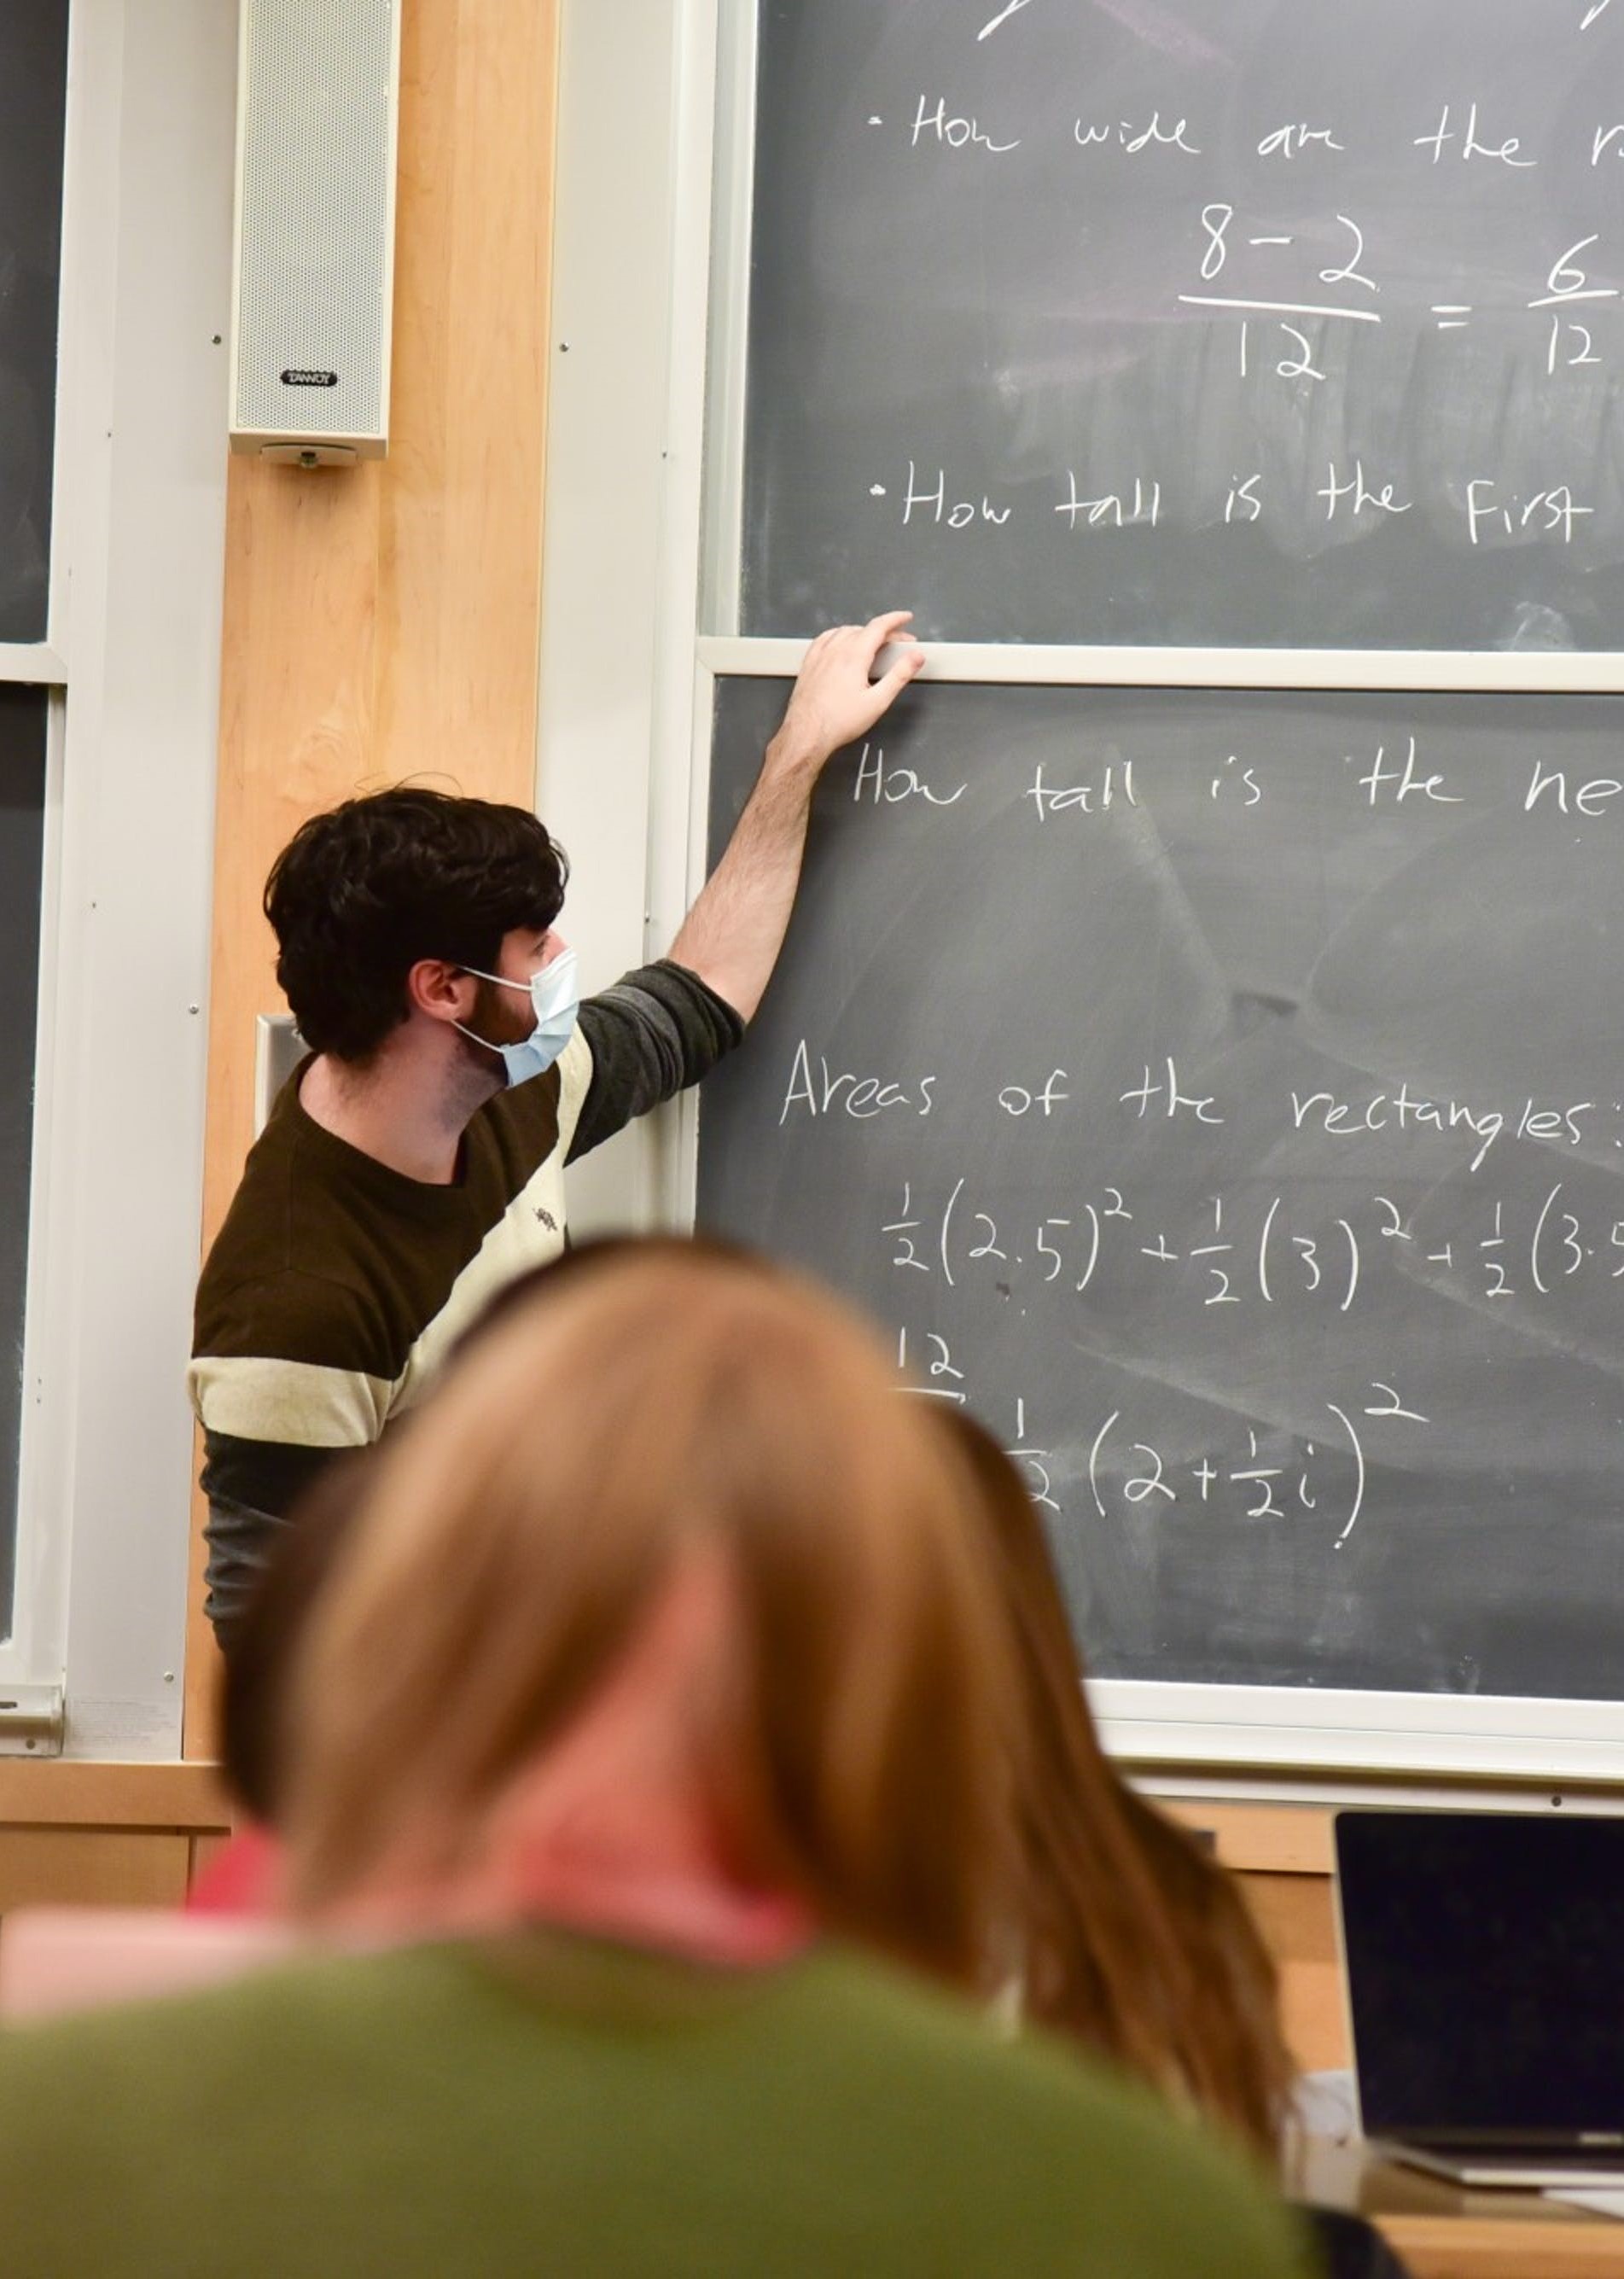 TANNOY
· How wide are the
8 - 2 / 12 = 6 / 12
· How tall is the First
How tall is the ne
Areas of the rectangles:
1/2 (2.5)² + 1/2 (3)² + 1/2 (3.5
12
1/2 (2 + 1/2 i)²